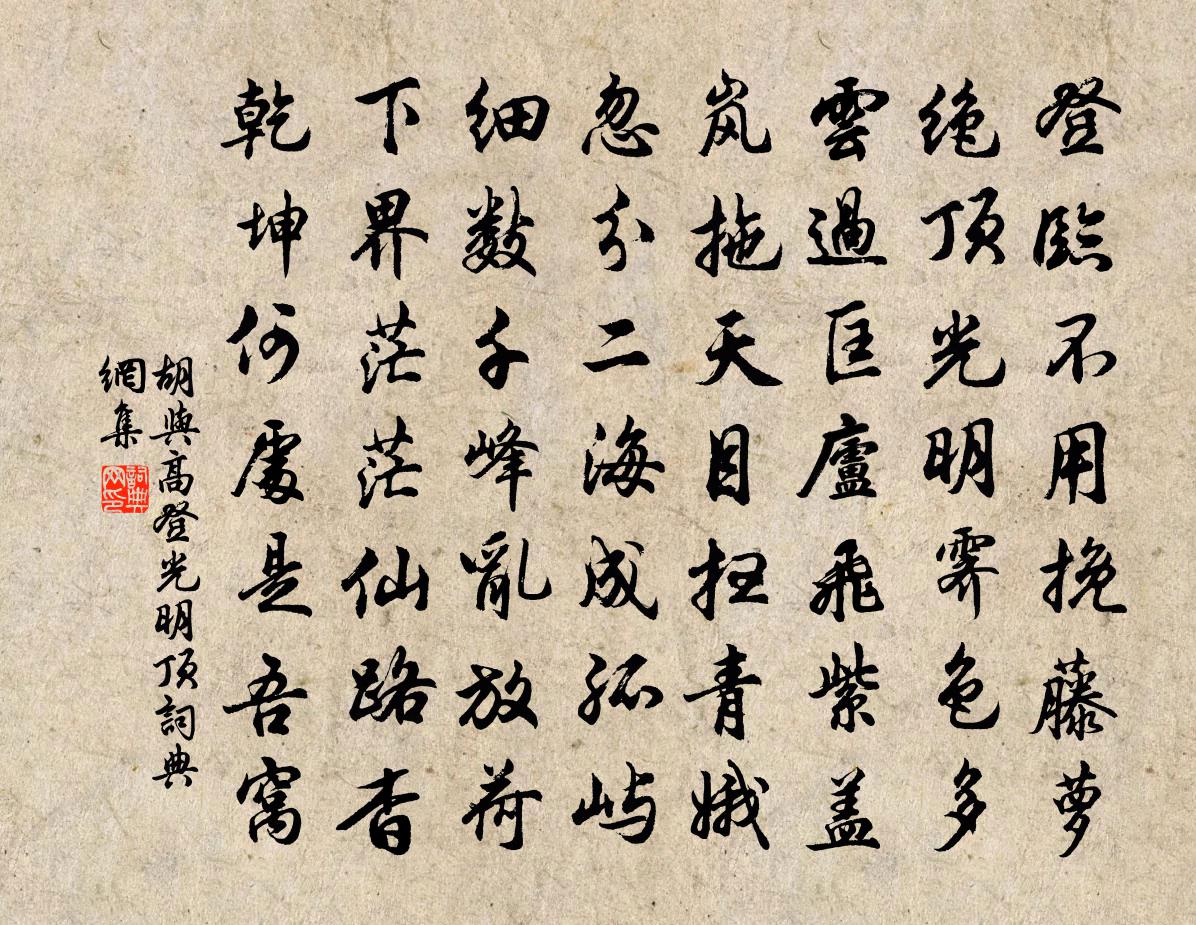 登臨不用挽藤萝
绝顶光明霁色多
雲過匡廬飛紫盖
岚拖天目扫青娥
忽分二海成孤屿
细数千峰亂放荷
下界茫茫仙路杳
乾坤何處是吾窩
胡與高登光明顶詞典
網集
詞典
网印